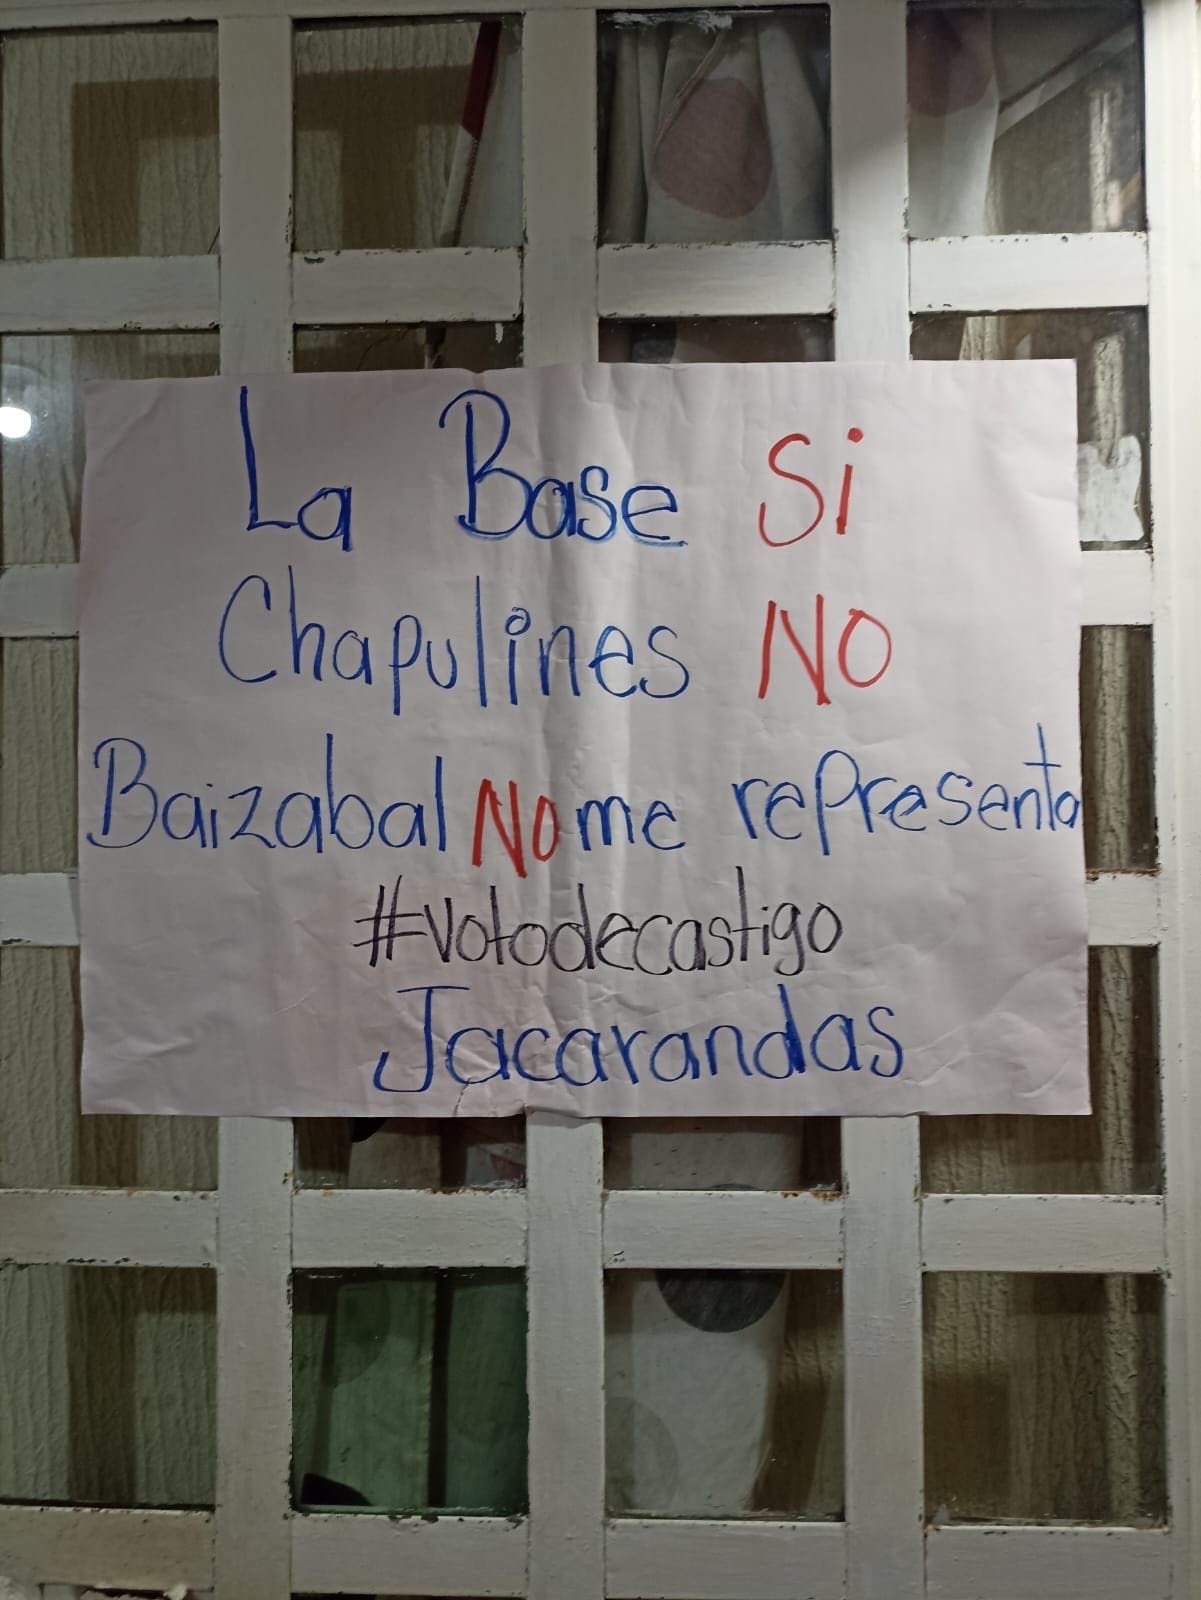 La Base Si
Chapulines NO
Baizabal NO me representa
#Votodecastigo
Jacarandas